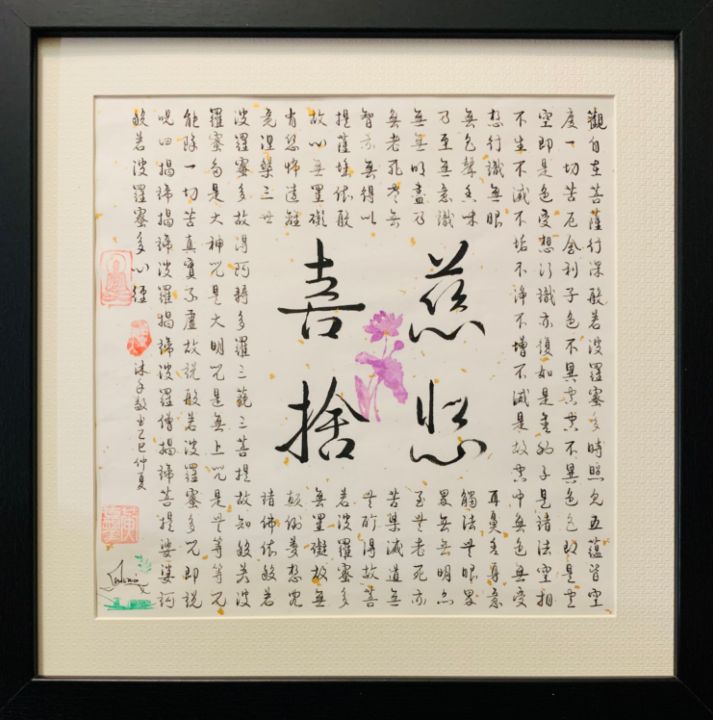 觀自在菩薩行深般若波羅蜜多時照見五蘊皆空
度一切苦厄舍利子色不異空空不異色色即是空
空即是色受想行識亦復如是舍利子是諸法空相
不生不滅不垢不淨不增不減是故空中無色無受
想行識無眼耳鼻舌身意
無色聲香味觸法無眼界
乃至無意識界無無明亦
無無明盡乃至無老死亦
無老死盡無苦集滅道無
智亦無得以無所得故菩
提薩埵依般若波羅蜜多
故心無罣礙無罣礙故無
有恐怖遠離顛倒夢想究
竟涅槃三世諸佛依般若
波羅蜜多故得阿耨多羅三藐三菩提故知般若波
羅蜜多是大神咒是大明咒是無上咒是無等等咒
能除一切苦真實不虛故說般若波羅蜜多咒即說
咒曰揭諦揭諦波羅揭諦波羅僧揭諦菩提娑婆訶
般若波羅蜜多心經
沐手敬書乙巳仲夏
慈悲
喜捨